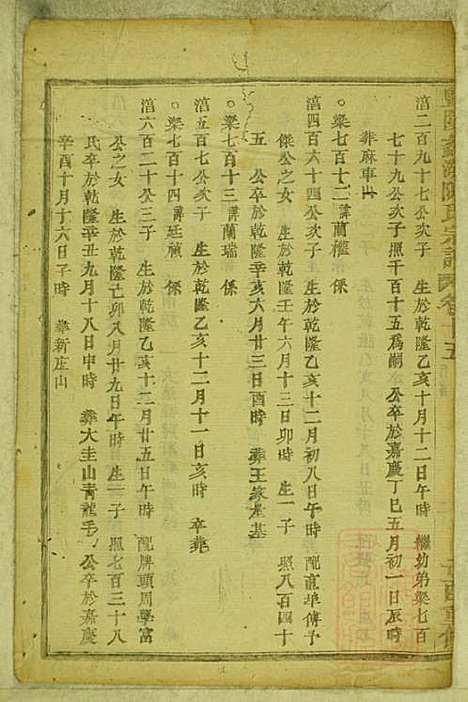 涫二百九十七公次子　生於乾隆乙亥十月十二日午時　繼幼弟榘七百
七十九公次子照千百十五爲嗣　公卒於嘉慶丁巳五月初一日辰時
葬麻車山
○榘七百十二諱蘭檻　保
涫四百六十四公次子　生於乾隆乙亥十二月初八日午時　配直埠傅予
傑公之女　生於乾隆壬午六月十三日卯時　生一子　照八百四十
五　公卒於乾隆辛亥六月廿三日酉時　葬王家屋基
○榘七百十三諱蘭瑞　保
涫五百七公次子　生於乾隆乙亥十二月十一日亥時　卒葬
○榘七百十四諱廷楨　保
涫六百二十公三子　生於乾隆乙亥十二月廿五日午時　配牌頭周學富
公之女　生於乾隆己卯八月廿九日午時　生一子　照七百三十八
氏卒於乾隆辛丑九月十八日申時　葬大圭山青龍毛　公卒於嘉慶
辛酉十月十六日子時　葬新庄山
陳氏宗譜　卷十五